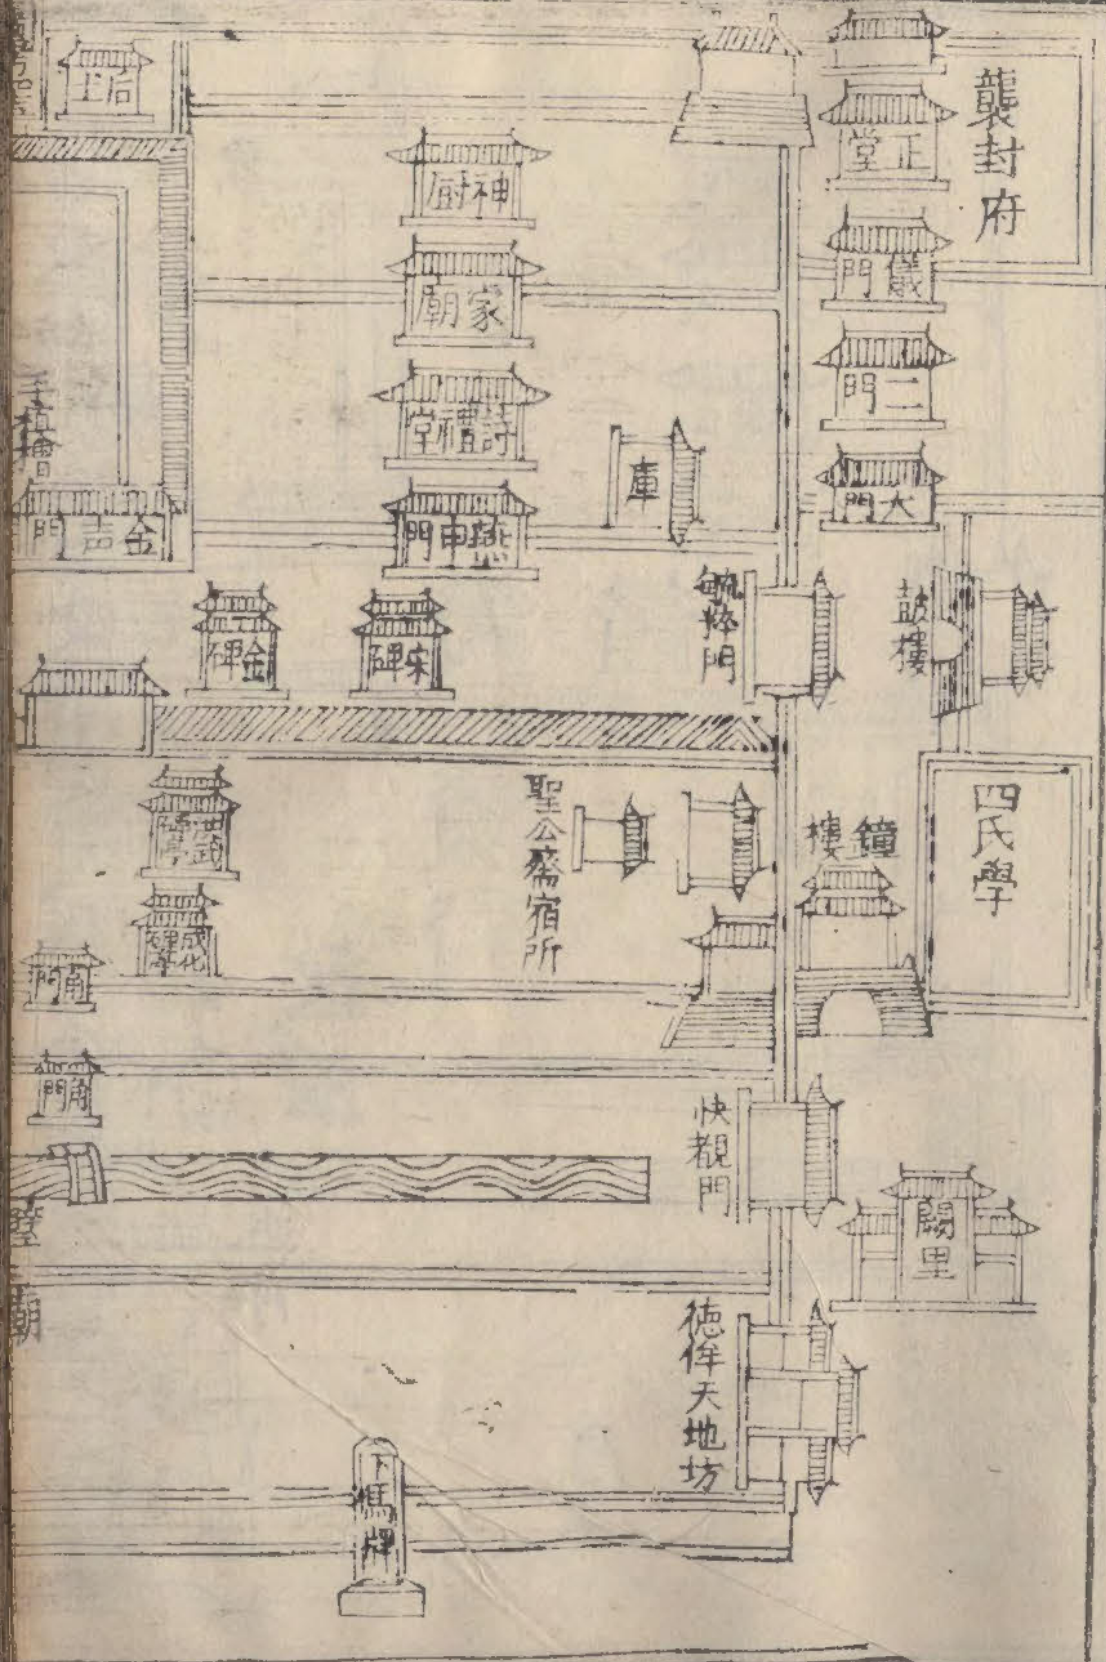 襲封府
正堂
儀門
二門
大門
鼓樓
四氏學
鐘樓
闕里
毓粹門
快覩門
德侔天地坊
庫
聖公齋宿所
神厨
家廟
詩禮堂
燕申門
宋碑
金碑
下馬牌
后土
手植檜
金声門
洪武碑亭
成化碑亭
角門
角門
廟